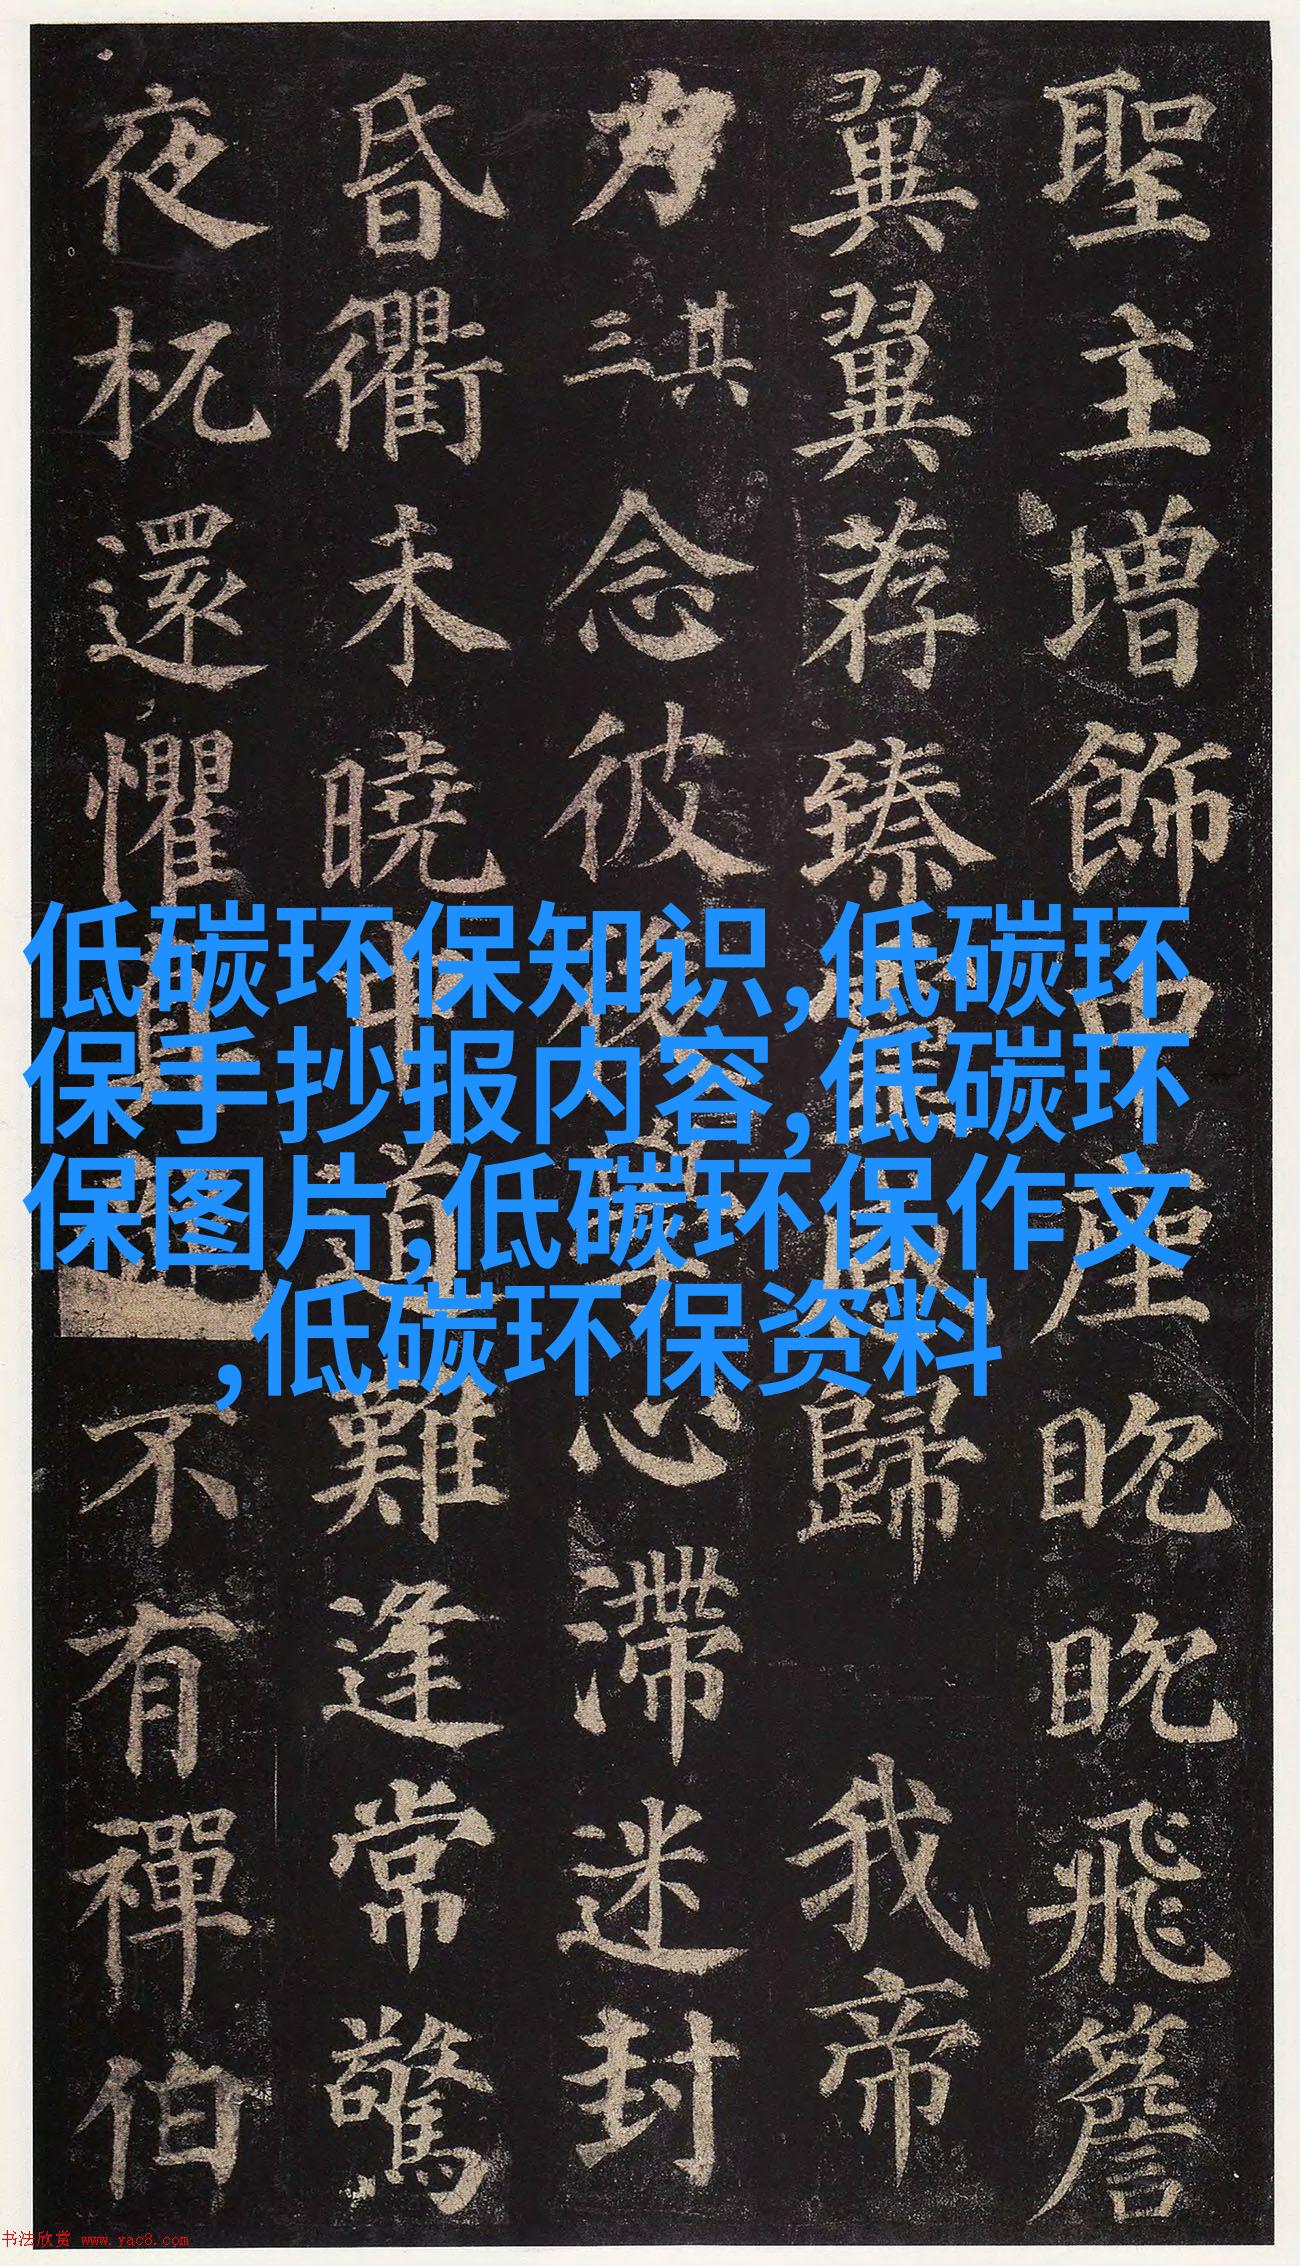 聖主增飾中座眈眈飛簷
翼翼荐臻歸我帝
力其三念彼後心滯迷封
昏衢未曉中道難逢常驚
夜杌還懼不有禪伯
低碳环保知识,低碳环
保手抄报内容,低碳环
保图片,低碳环保作文
,低碳环保资料
书法欣赏 www.yac8.com